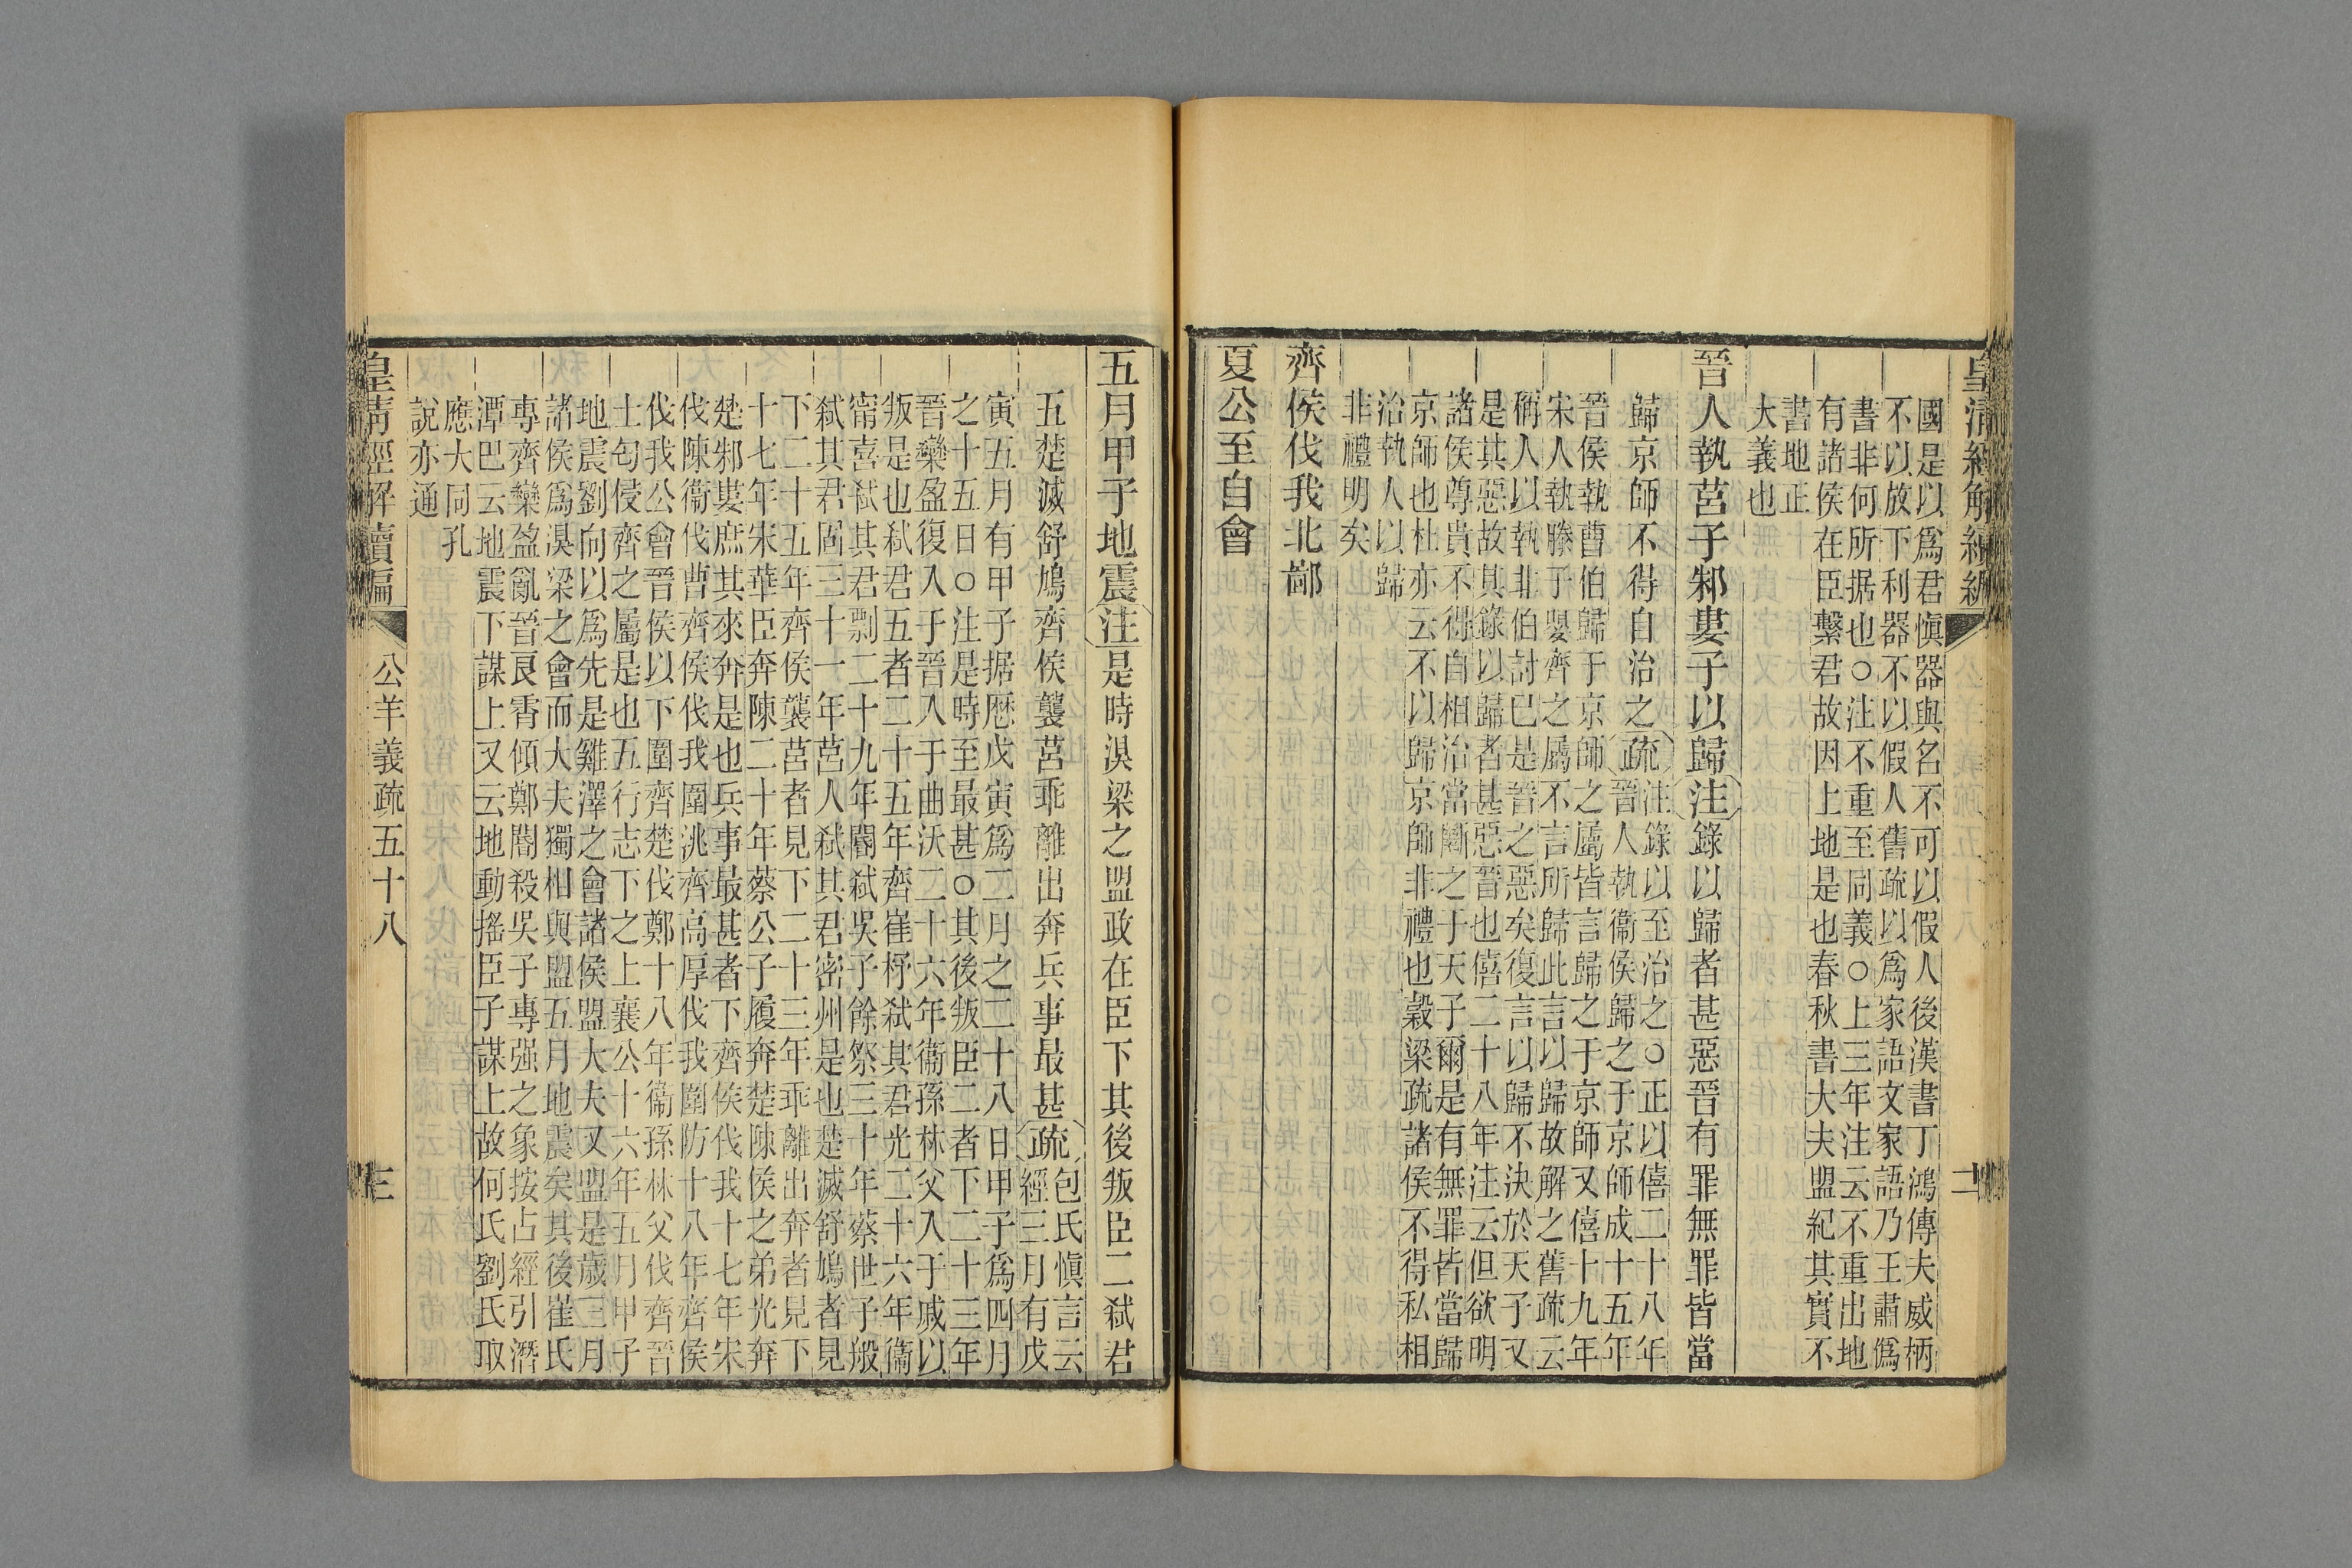 皇清經解續編
二
國是以爲君愼器與名不可以假人後漢書丁鴻傳夫威柄
不以放下利器不以假人舊疏以爲家語文家語乃王肅僞
書非何所据也○注不重至同義○上三年注云不重出地
有諸侯在臣繫君故因上地是也春秋書大夫盟紀其實不
書地正
大義也
晉人執莒子邾婁子以歸注錄以歸者甚惡晉有罪無罪皆當
歸京師不得自治之疏
注錄以至治之○正以僖二十八年
晉人執衞侯歸之于京師成十五年
晉侯執曹伯歸于京師之屬皆言歸之于京師又僖十九年
宋人執滕子嬰齊之屬不言所歸此言以歸故解之舊疏云
稱人以執非伯討已是晉之惡矣復言以歸不決於天子又
是其惡故其錄以歸者甚惡晉也僖二十八年注云但欲明
諸侯尊貴不得自相治當斷之于天子爾是有無罪皆當歸
京師也杜亦云不以歸京師非禮也穀梁疏諸侯不得私相
治執人以歸
非禮明矣
齊侯伐我北鄙
夏公至自會
五月甲子地震注是時湨梁之盟政在臣下其後叛臣二弑君
五楚滅舒鳩齊侯襲莒乖離出奔兵事最甚疏
包氏愼言云
經三月有戊
寅五月有甲子据厯戊寅爲二月之二十八日甲子爲四月
之十五日○注是時至最甚○其後叛臣二者下二十三年
晉欒盈復入于晉入于曲沃二十六年衞孫林父入于戚以
叛是也弑君五者二十五年齊崔杼弑其君光二十六年衞
甯喜弑其君剽二十九年閽弑吳子餘祭三十年蔡世子般
弑其君固三十一年莒人弑其君密州是也楚滅舒鳩者見
下二十五年齊侯襲莒者見下二十三年乖離出奔者見下
十七年宋華臣奔陳二十年蔡公子履奔楚陳侯之弟光奔
楚邾婁庶其來奔是也兵事最甚者下齊侯伐我十七年宋
伐陳衞伐曹齊侯伐我圍洮齊高厚伐我圍防十八年齊侯
伐我公會晉侯以下圍齊楚伐鄭十八年衞孫林父伐齊晉
士匄侵齊之屬是也五行志下之上襄公十六年五月甲子
地震劉向以爲先是雞澤之會諸侯盟大夫又盟是歲三月
諸侯爲湨梁之會而大夫獨相與盟五月地震矣其後崔氏
專齊欒盈亂晉良霄傾鄭閽殺吳子專强之象按占經引潛
潭巴云地震下謀上又云地動搖臣子謀上故何氏劉氏取
應大同孔
說亦通
皇清經解續編
公羊義疏五十八
三